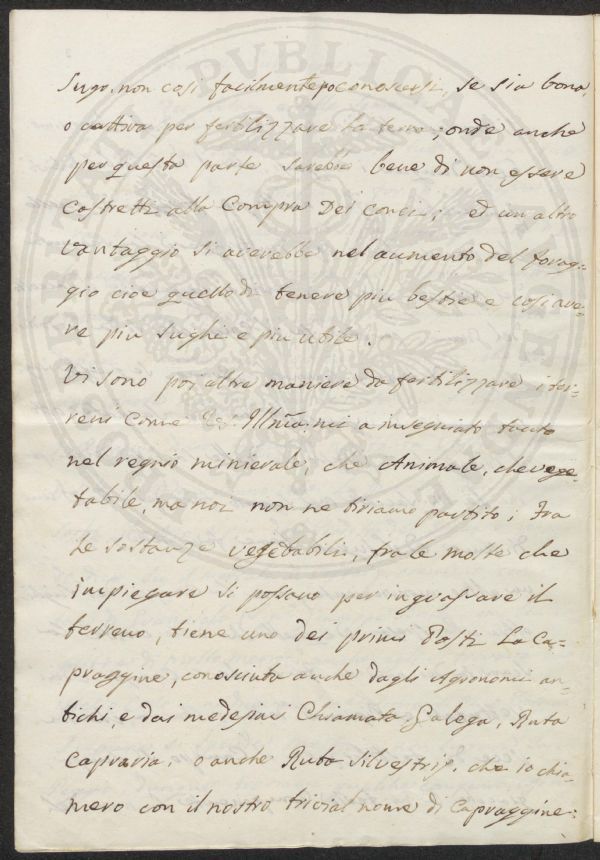 Sugo, non cosi facilmente po conoscersi, se sia bona,
o cattiva per fertilizzare la terra; onde anche
per questa parte sarebbe bene di non essere
Costretti alla Compra Dei conci; ed un altro
Vantaggio si averebbe nel aumento del forag=
gio cioe quello di tenere piu bestie e cosi ave=
re piu sughi e piu utile.
Vi sono poi altre maniere da fertilizzare i ter=
reni Come Illma. mi a insegniato tanto
nel regnio minierale, che Animale, che vege=
tabile, ma noi non ne tiriamo partito; Fra
Le sostanze vegetabili, fra le molte che
impiegare si possano per ingrassare il
terreno, tiene uno dei primi Posti La Ca=
praggine, conosciuta anche dagli Agronomi an=
tichi, e dai medesimi Chiamata Galega, Ruta
Capraria, o anche Ruta Silvestris, che io chia=
merò con il nostro trivial nome di Capraggine: